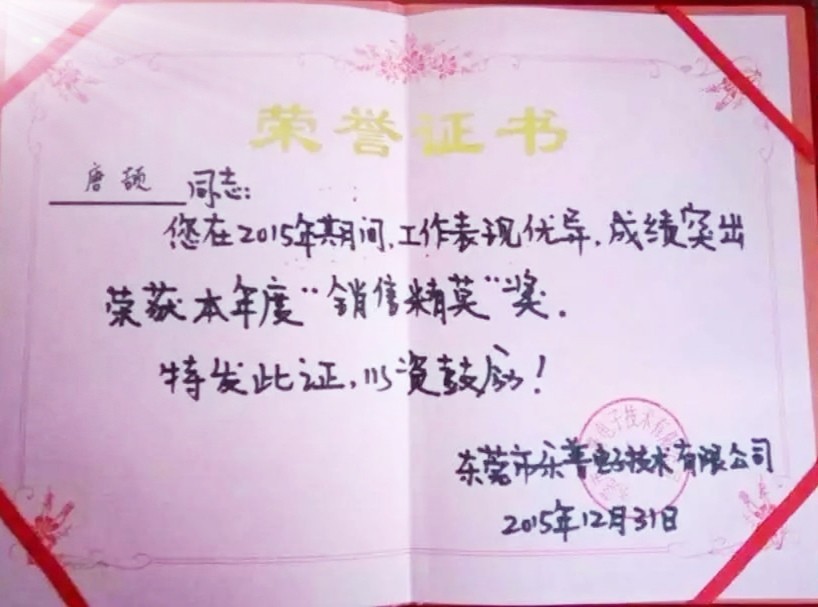 荣誉证书
唐颉 同志:
您在2015年期间,工作表现优异,成绩突出
荣获本年度"销售精英"奖.
特发此证,以资鼓励!
东莞市乐普电子技术有限公司
2015年12月31日